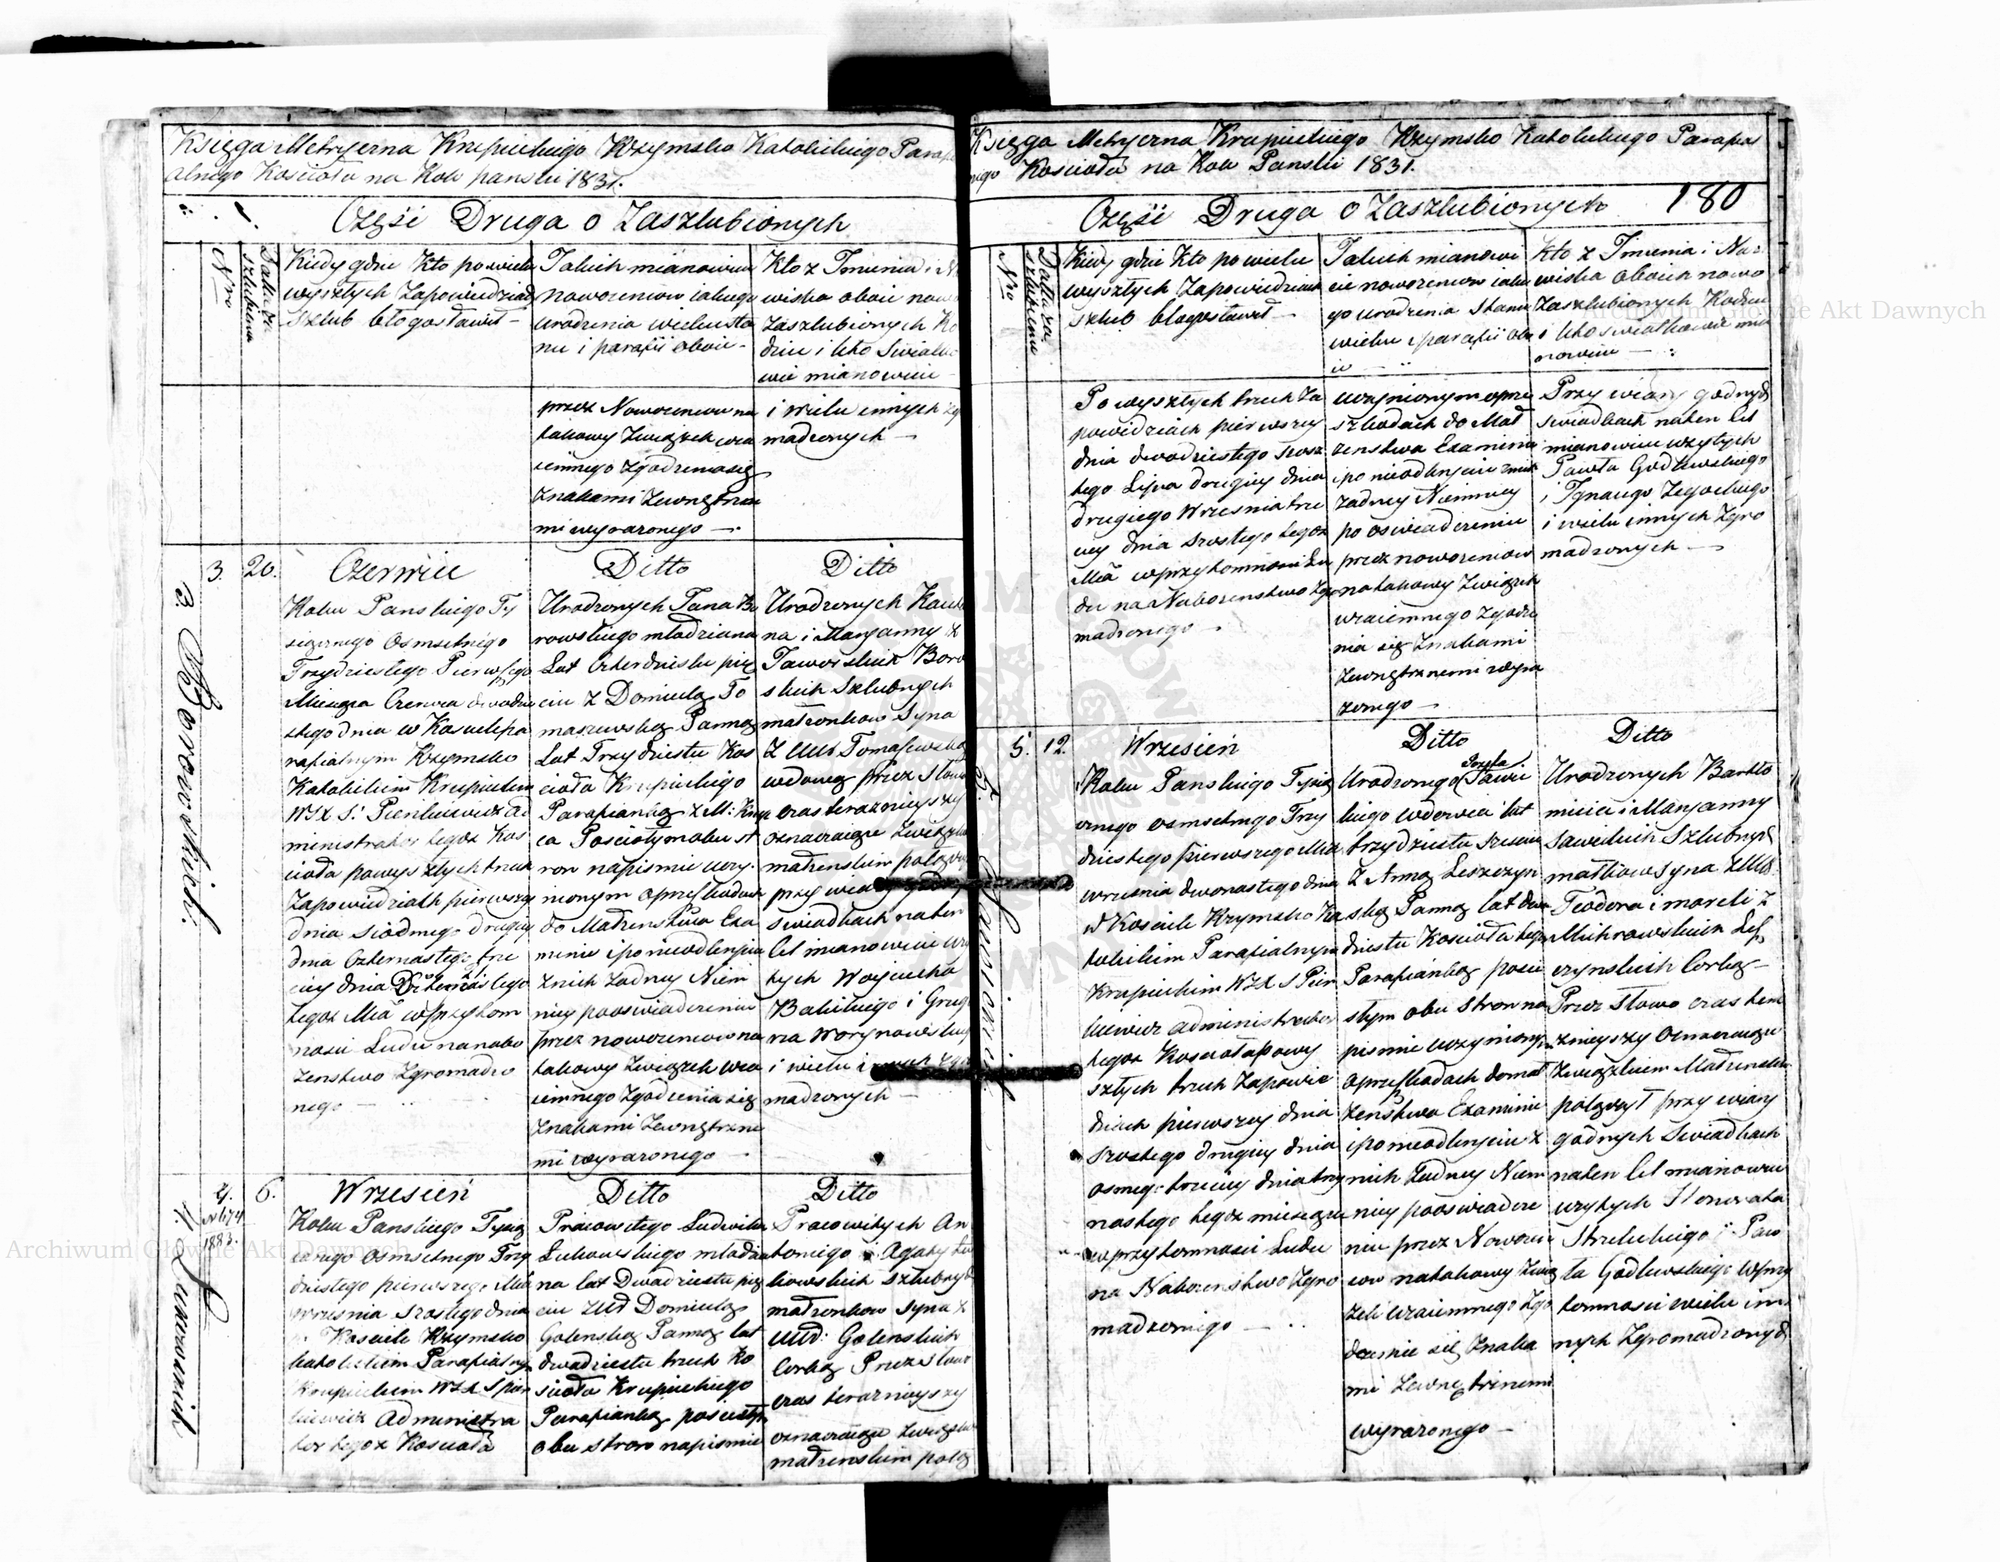 Księga Metryczna Krupieckiego Rzymsko Katolickiego Parafi
alnego Kościoła na Rok panski 1831.
Część Druga o Zaszlubionych
Nro
Data zaszlubienia
Kiedy gdzie Kto powielu
wyszłych Zapowiedziach
Szlub błogosławił —
Jakich mianowicie
Nowożeniow iakiego
urodzenia wieku sta
nu i parafii oboie -
Kto z Imienia i Na
wiska oboie nowo
Zaszlubionych Ro
dzice i kto Swiadko
wie mianowicie
przez Nowożeniow na
takowy Zwiąszek wza
iemnego Zgodzenia się
Znakami Zewnętrzne
mi wyrażonego —
i wielu innych zg
madzonych —
3. Borowskich.
3. 20.
Czerwiec
Roku Panskiego Ty
siącznego Osmsetnego
Trzydziestego Pierwszego
Miesiąca Czerwca dwudzie
stego dnia w Kosciele pa
rafialnym Rzymsko
Katolickim Krupieckim
WJX S: Pienkiewicz Ad
ministrator tegoż Kos
cioła powyszłych trzech
Zapowiedziach pierwszey
dnia siódmego drugiey
dnia Czternastego trze
ciey dnia
tegoż Mca w przytom
nosci Ludu na nabo
żenstwo Zgromadzo
nego —
Ditto
Urodzonych Jana Bo
rowskiego młodziana
Lat Czterdziestu pię
ciu z Domicelą To
maszewską Panną
Lat Trzydziestu Kos
cioła Krupieckiego
Parafianką z M: Kru
ca Posciołym obu st
ron napismie uczy
nionym oprzeszkodach
do Małżenstwa Exa
minie i po nieodkryciu
Znich żadney Niem
niey po oswiadczeniu
przez nowożeniow na
takowy Zwiąszek wza
iemnego Zgodzenia się
Znakami Zewnętrzne
mi wyrażonego —
Ditto
Urodzonych Kaie
na i Maryanny z
Jaworskich Boro
skich Szlubnych
małżonkow Syna
Z UUr Tomaszewską
wdową przez Słow
o czas teraznieyszy
oznaczaiące Zwiąszkiem
małżenskim połączył
przy wiary godnych
swiadkach na ten
cel mianowicie uży
tych Woyciecha
Bakickiego i Grzeg
na Worynowskiego
i wielu innych Zgro
madzonych —
4. Lukowskich
4.
N 674
1883.
6.
Wrzesień
Roku Panskiego Tysią
cznego Osmsetnego Trzy
dziestego pierwszego Mca
Wrzesnia szostego dnia
w Kosciele Rzymsko
katolickim Parafialnym
Krupieckim WJX S Pien
kiewicz Administra
tor tegoż Kościoła
Ditto
Pracowitego Ludwika
Lukowskiego młodzia
na lat Dwadziestu pię
ciu z UUr Domicelą
Golenską Panną lat
dwadziestu trzech Ko
scioła Krupieckiego
Parafianką posciołym
obu stron napismie
Ditto
Pracowitych An
toniego i Agaty Lu
kowskich szlubnych
małżonkow Syna z
UUr: Golenskich
Corką Przez słowo
czas teraznieyszy
oznaczaiące Zwiąszkiem
małżenskim połą
Księga Metryczna Krupieckiego Rzymsko Katolickiego Parafial
nego Kościoła na Rok Panski 1831.
Część Druga o Zaszlubionych
180
Nro
Data zaszlubienia
Kiedy gdzie Kto po wielu
wyszłych Zapowiedziach
szlub błogosławił —
Jakich mianowi
cie nowożeniow iakie
go urodzenia stanu
wieku i parafii obo
ie — ..
Kto z Imienia i Na
wiska oboich nowo
Zaszlubionych Rodzice
i kto swiadkowie mia
nowicie — :
Powyszłych trzech Za
powiedziach pierwszey
dnia dwudziestego szos
tego Lipca drugiey dnia
drugiego Wrzesnia trze
ciey dnia szostego tegoż
Mca w przytomnosci Lu
du na Nabożenstwo Zgro
madzonego —
uczynionym oprze
szkodach do Mał
żenstwa Examinie
i po nieodkryciu znich
żadney Niemniey
po oswiadczeniu
przez nowożeniow
na takowy Zwiąszek
wzaiemnego Zgodze
nia się Znakami
Zewnętrznemi wyra
żonego —
Przy wiary godnych
swiadkach na ten cel
mianowicie użytych
Pawła Godlewskiego
i Ignacego Zegockiego
i wielu innych Zgro
madzonych —
5.
5. 12.
Wrzesień
Roku Panskiego Tysią
cznego osmsetnego Trzy
dziestego pierwszego Mca
wrzesnia dwonastego dnia
w Kosciele Rzymsko Ka
tolickim Parafialnym
Krupieckim WJX S Pien
kiewicz Administrator
tegoż Kościoła powy
szłych trzech Zapowie
dziach pierwszey dnia
szostego drugiey dnia
osmego trzeciey dnia
nastego tegoż miesiąca
w przytomnosci Ludu
na Nabożenstwo Zgro
madzonego —
Ditto
Urodzonego Józefa Sawic
kiego wdowca lat
trzydziestu szesciu
Z Anną Leszczyn
ską Panną lat dwa
dziestu Kościoła tegoż
Parafianką poscio
łym obu stron na
pismie uczynionym
oprzeszkodach do mał
żenstwa Examinie
i po nieodkryciu z
nich żadney Niem
niey po oswiadcze
niu przez Nowoże
niow na takowy Zwią
zek wzaiemnego Zgo
dzenie się Znaka
mi Zewnętrznemi
wyrażonego —
Ditto
Urodzonych Bartło
mieia i Maryanny
Sawickich Szlubnych
małżonkow Syna z UUr
Teodora i Marcelli z
Mukrowskich Lesz
czynskich Corką —
Przez słowo czas tera
znieyszy oznaczaiące
Zwiąszkiem Małżenskim
połączył przy wiary
godnych Swiadkach
na ten cel mianowicie
użytych Honorata
Strzeleckiego i Paw
ła Godlewskiego w przy
tomnosci wielu in
nych Zgromadzonych
Archiwum Główne Akt Dawnych
Archiwum Główne Akt Dawnych